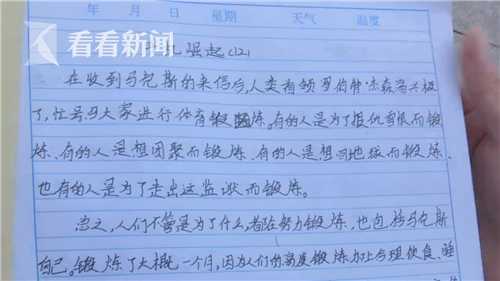 看看新闻
年 月 日 星期 天气 温度
崛起(12)
在收到马克斯的来信后,人类首领罗伯特·杰森高兴极
了,忙号召大家进行体育锻炼。有的人是为了报仇雪恨而锻
炼、有的人是想团聚而锻炼、有的人是想回地球而锻炼、
也有的人是为了走出这监狱而锻炼。
总之,人们不管是为了什么,都在努力锻炼,也包括马克斯
自己。锻炼了大概一个月,因为人们的高度锻炼加上合理饮食、睡